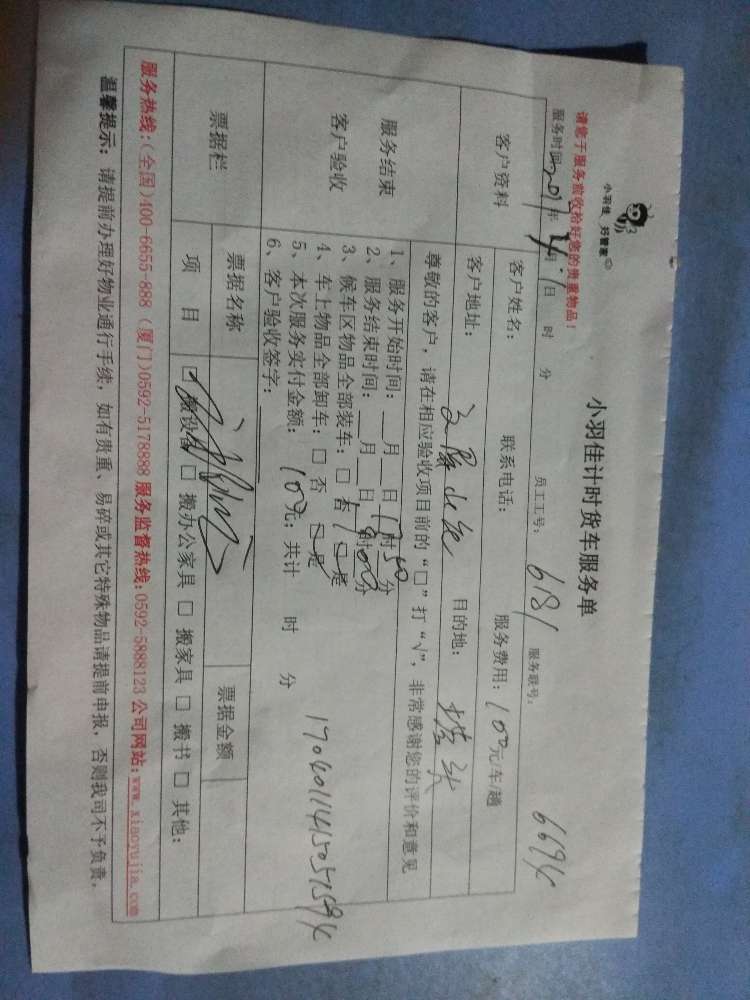 小羽佳 好管家
小羽佳计时货车服务单
请您于服务前收检好您的贵重物品！
服务时间：2017年4月1日 时 分 员工工号：6181 服务联号：
客户资料
客户姓名： 联系电话： 服务费用：100元/车/趟
客户地址： 目的地：
服务结束
客户验收
尊敬的客户，请在相应验收项目前的“□”打“√”，非常感谢您的评价和意见
1、服务开始时间：__月__日17时50分
2、服务结束时间：__月__日
3、候车区物品全部装车：□ 否 □ 是
4、车上物品全部卸车：□ 否 □ 是
5、本次服务实付金额：100元；共计 时 分
6、客户验收签字：
票据栏
票据名称 票据金额
项 目 □ 搬设备 □ 搬办公家具 □ 搬家具 □ 搬书 □ 其他：
服务热线：(全国)400-6655-888 (厦门)0592-5178888 服务监督热线：0592-5888123 公司网站：www.xiaoyujia.com
温馨提示：请提前办理好物业通行手续，如有贵重、易碎或其它特殊物品请提前申报，否则我司不予负责。